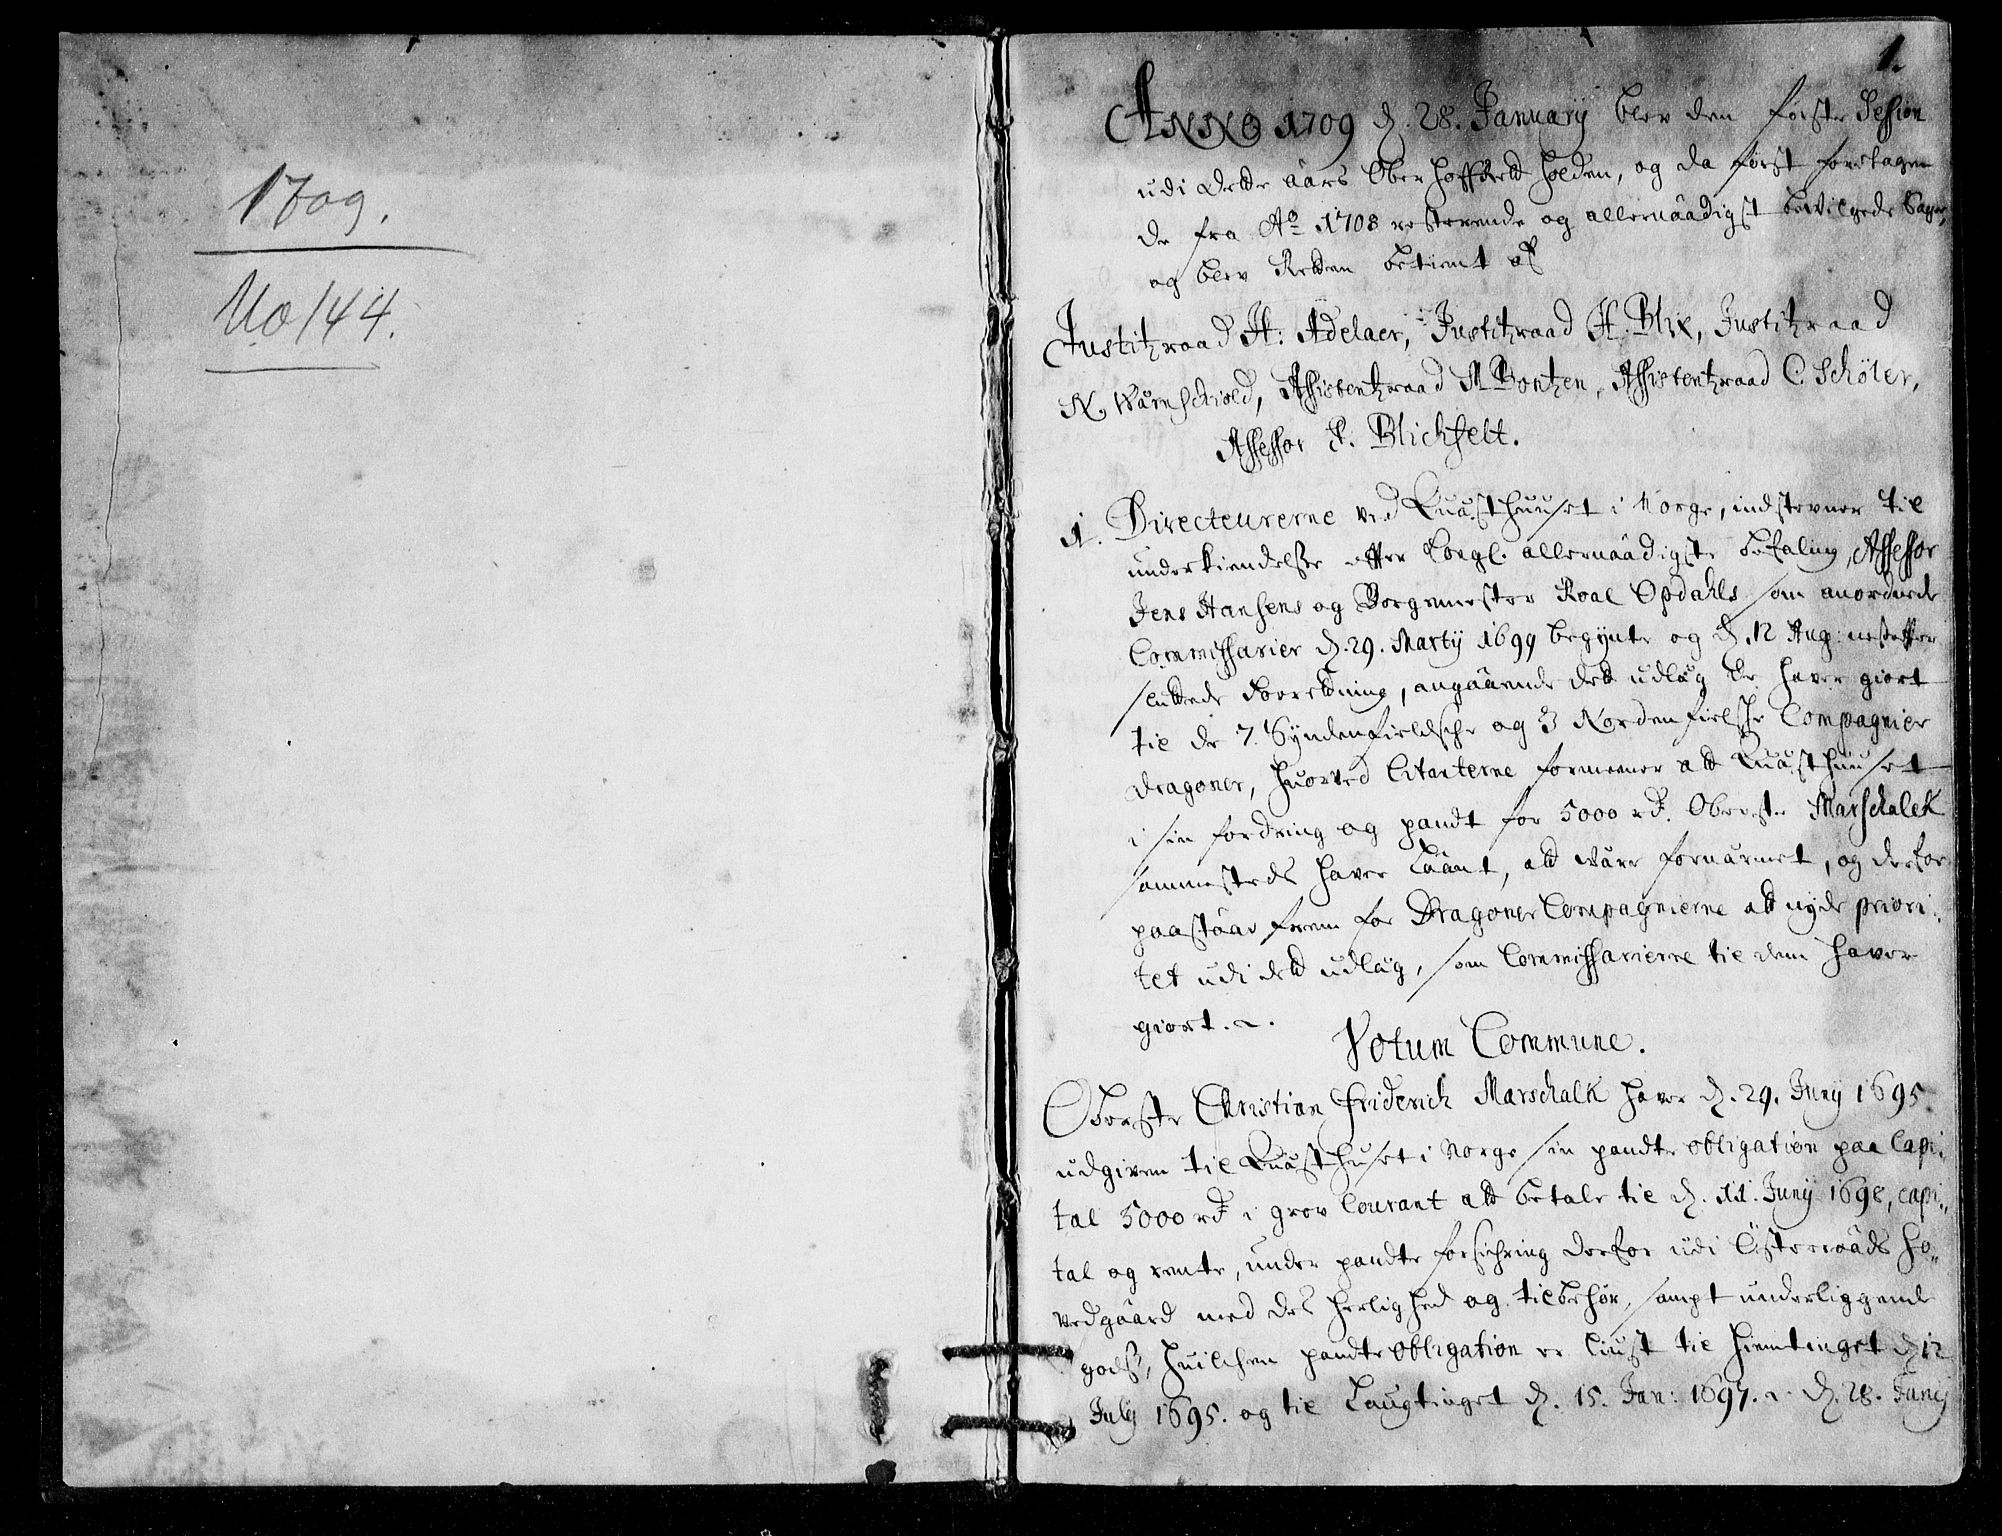 1709.
No 144.
1.
ANNO 1709 d. 28. Januarij blev den første Session
udi dette aars Oberhoffrett holden, og da først foretagen
de fra Ao 1708 resterende og allernaadigst bevilgede Sager,
og blev Retten betient af
Justitzraad H: Adelaer, Justitzraad H. Blix, Justitzraad
N. Wærnschiold, Assistentzraad M Bontzen, Assistentzraad C. Schöler,
Assessor P. Blichfelt.
1. Directeurerne ved Quæsthuuset i Norge, indstevner til
underkiendelse efter Kongl. allernaadigste befaling, Assessor
Jens Hansens og Borgemester Roal Opdahls som anordnede
Commissarier d. 29. Martij 1699 begynte og d. 12 Aug: nestefter
sluttede Forretning, angaaende det udlæg de haver giort
til de 7. Syndenfieldsche og 3 Nordenfielsche Compagnier
Dragoner, huorved Citanterne formeener at Quæsthuuset
i sin fordring og pandt for 5000 rd. Oberste Marschalck
sammesteds haver laant, at være fornærmet, og derfor
paastaar frem for Dragoner Compagnierne at nyde priori-
tet udi det udlæg, som Commissarierne til dem haver
giort.
Votum Commune.
Oberste Christian Friderich Marschalk haver d. 29. Junij 1695.
udgiven til Quæsthuset i Norge sin pandte obligation paa Capi-
tal 5000 rd i grov Courant at betale til d. 11. Junij 1698, capi-
tal og rente, under pandte forsichring derfor udi Østeraads Ho-
vedgaard med des herlighed og tilbehør, sampt underliggende
gods, huilchen pandte obligation er liust til hiemtinget d 12
July 1695. og til Laugtinget d. 15. Jan: 1697. d. 28. Junij